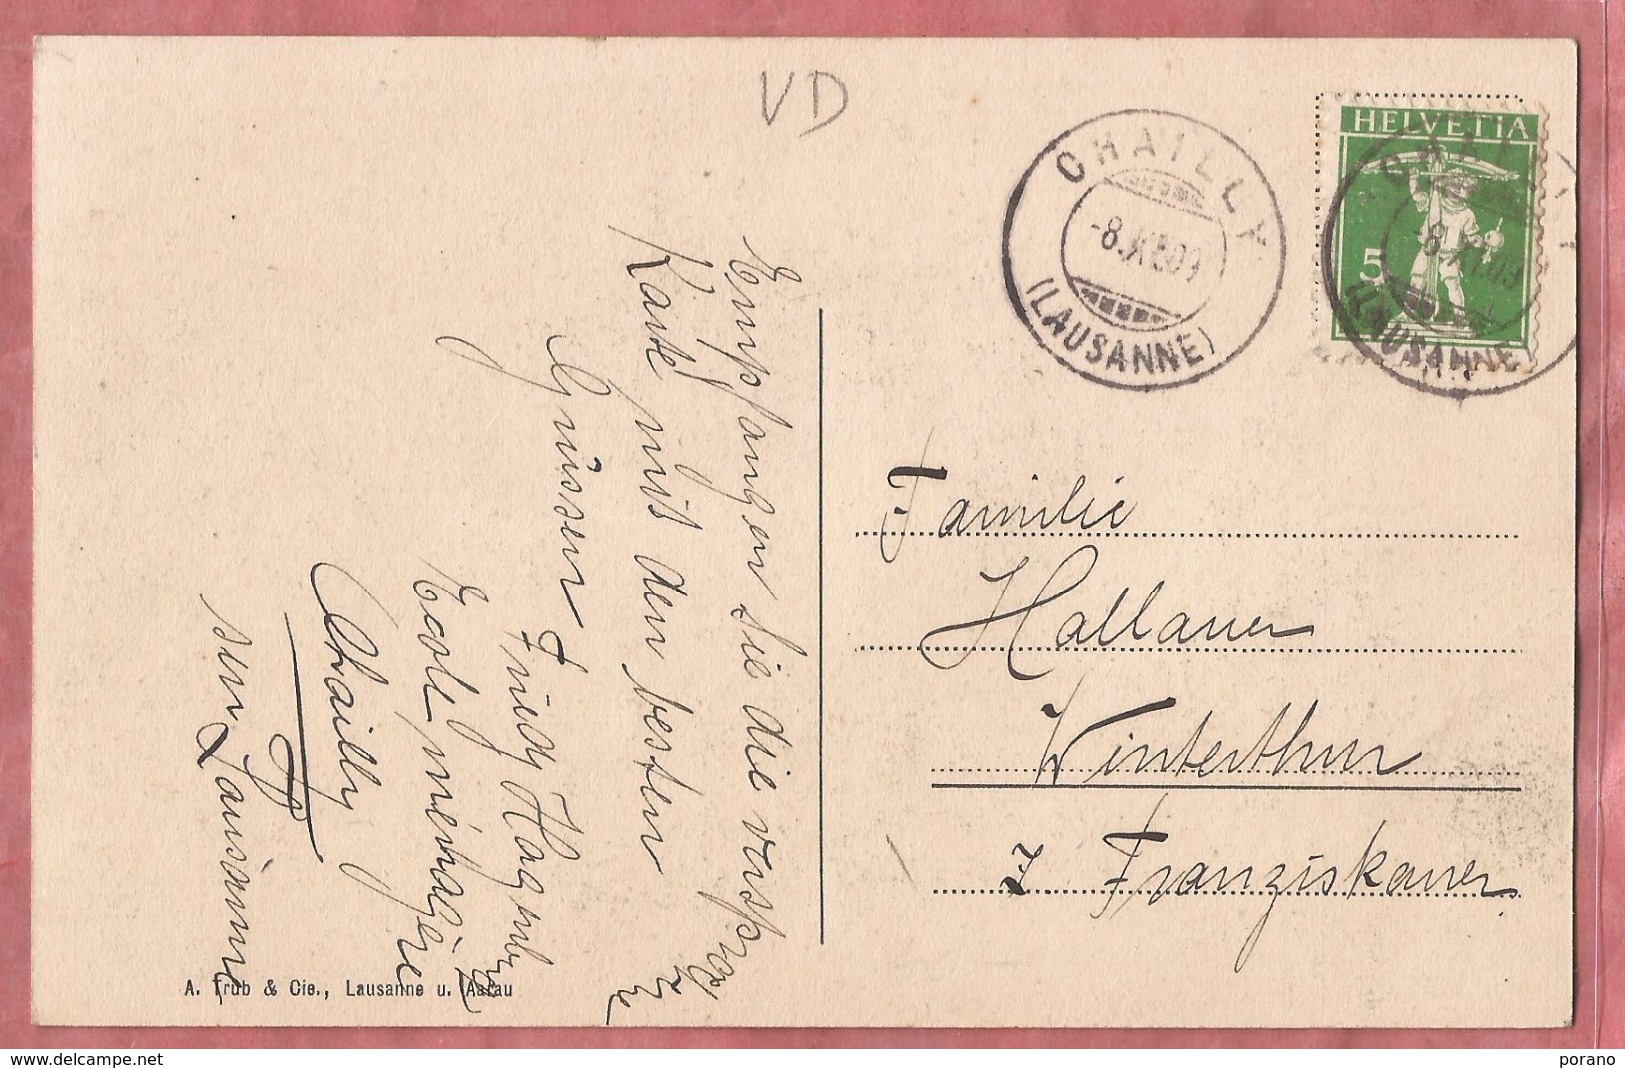 VD
CHAILLY
-8.XI.09
(LAUSANNE)
HELVETIA
5
CHAILLY
-8.XI.09
(LAUSANNE)
Empfangen Sie die versprochene
Karte mit den besten
Grüssen
Frieda
Ecole ménagère
Chailly
sur Lausanne
Familie
Hallauer
Winterthur
z Franziskaner
A. Trüb & Cie., Lausanne u. Aarau
delcampe.net
porano